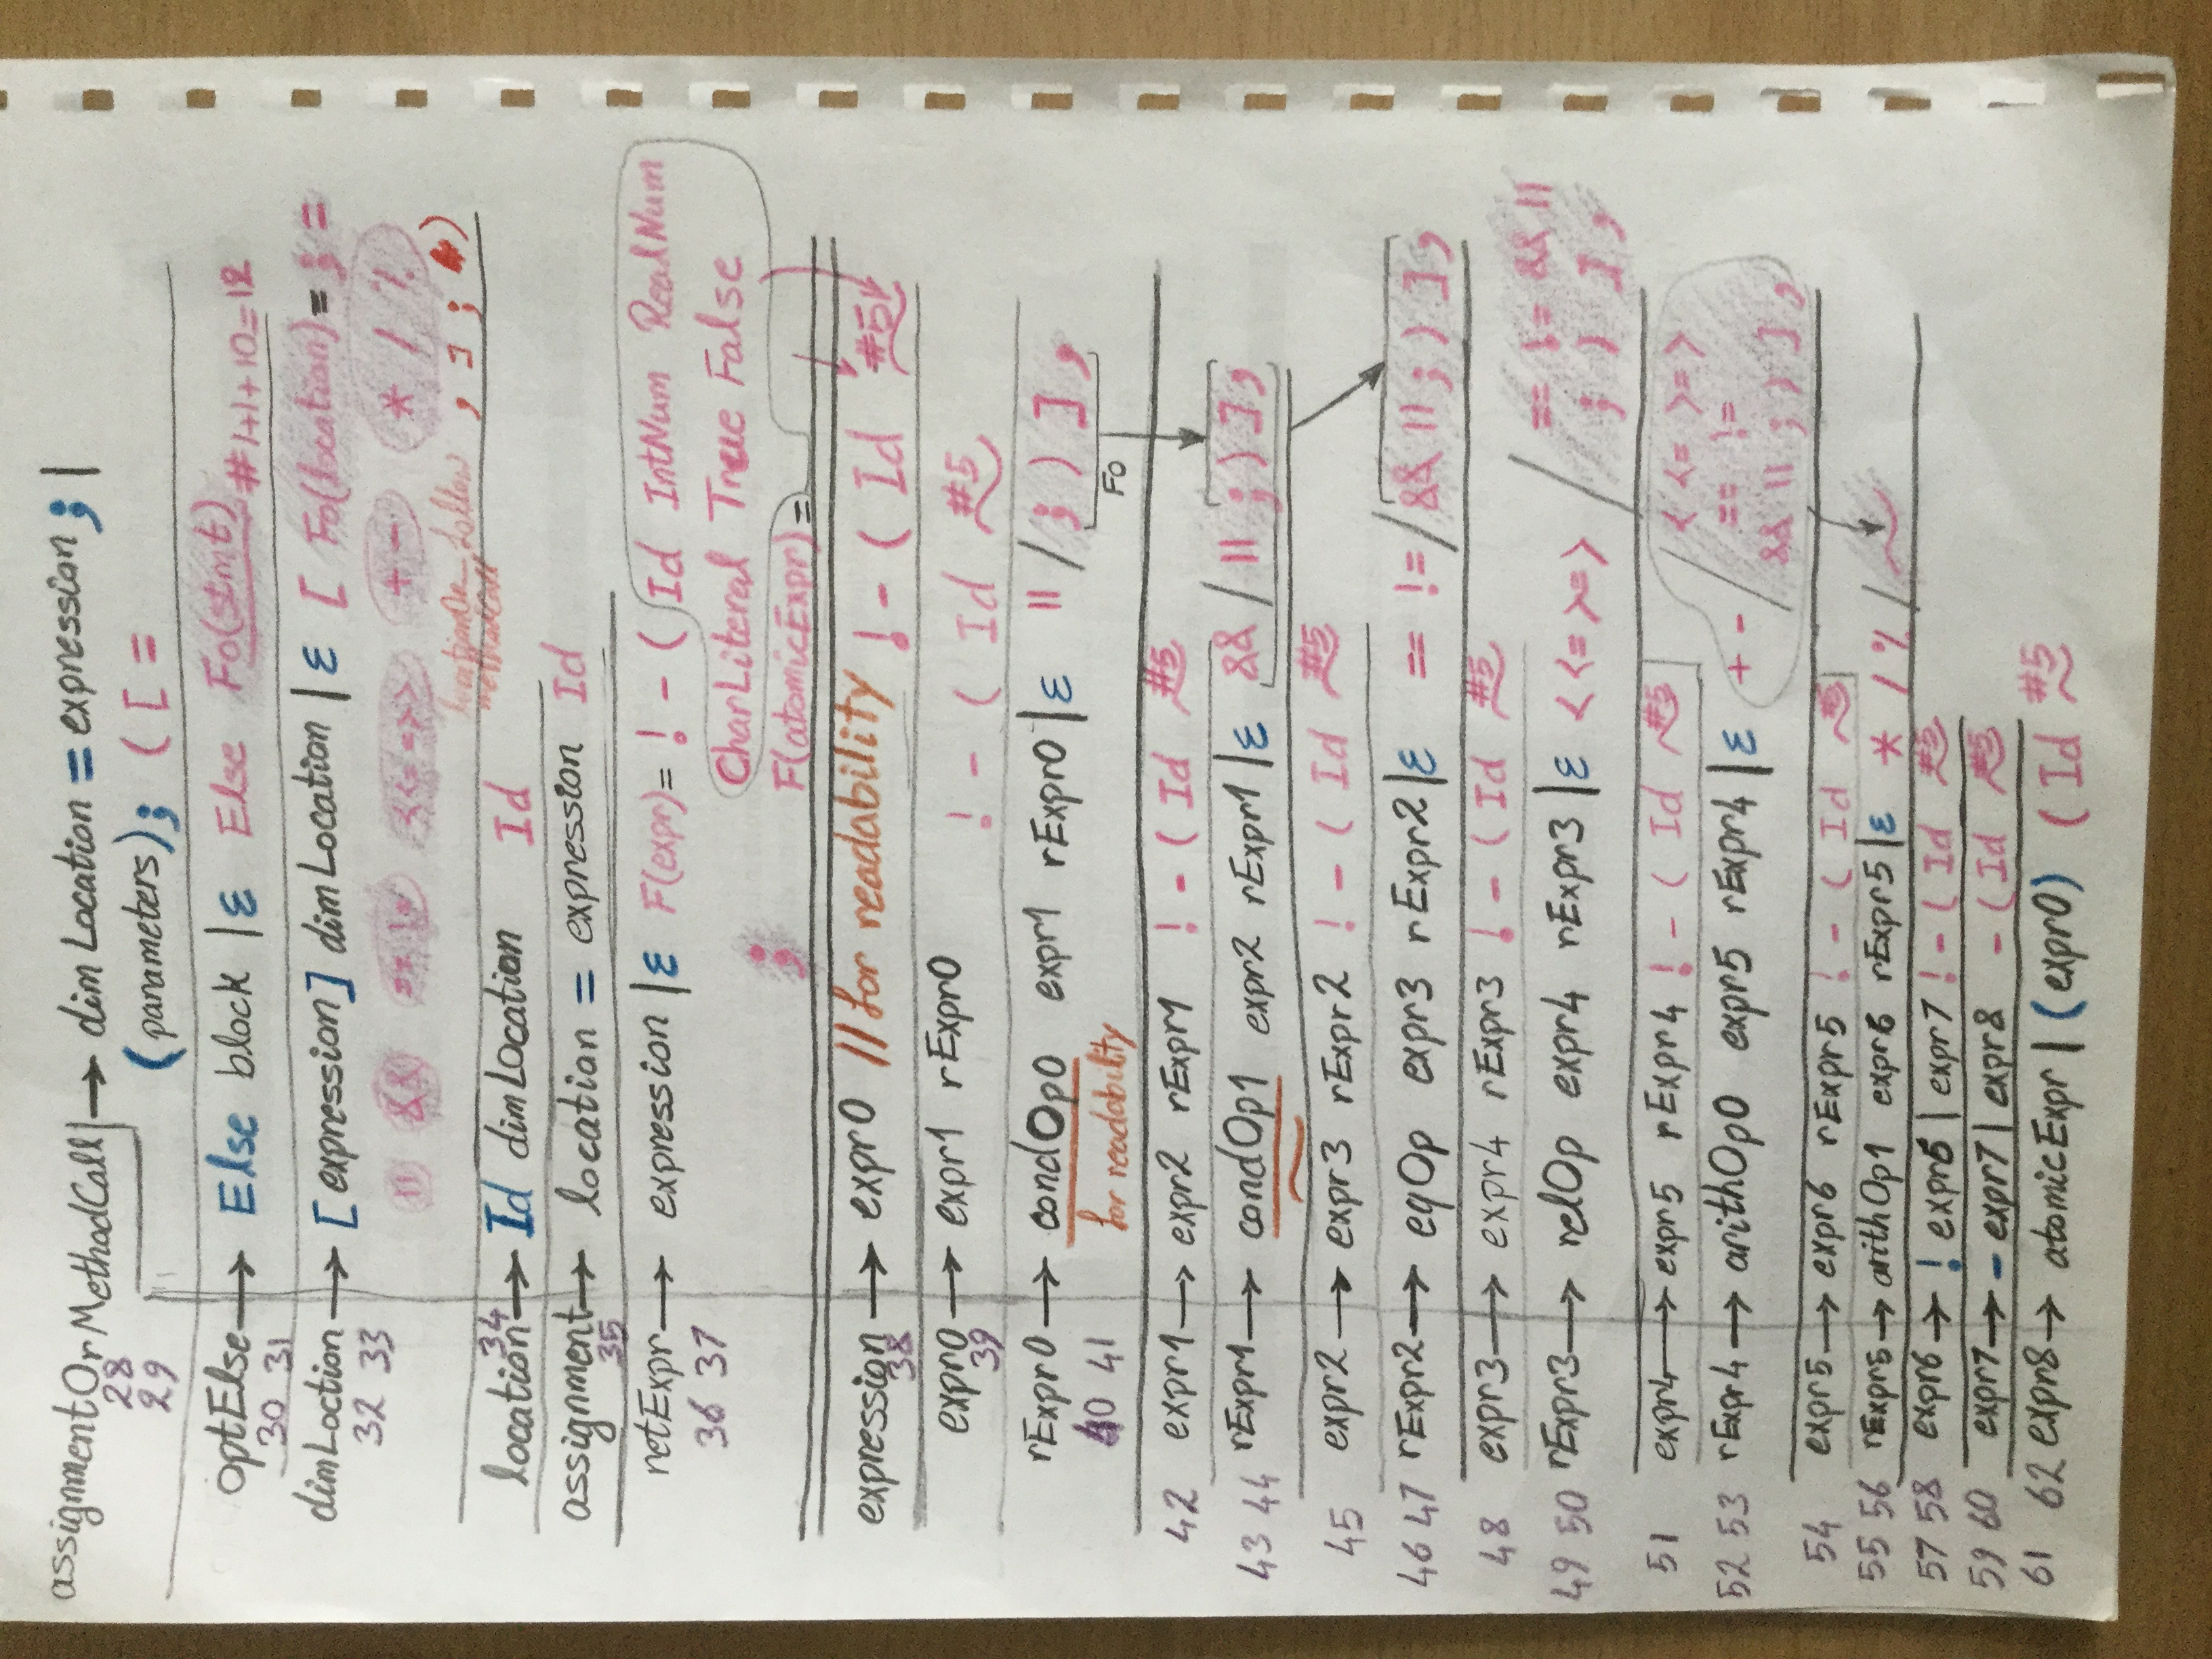 assignmentOrMethodCall → dimLocation = expression ; |
28 (parameters) ; ( [ =
29
optElse → Else block | ε Else Fo(stmt) #14+10=12
30 31
dimLoction → [ expression ] dimLocation | ε [ Fo(location) = ; =
32 33 || && == != < <= => > + - * / %
locationOr methodCall follow , ] ; )
location → Id dimLocation Id
34
assignment → location = expression Id
35
retExpr → expression | ε F(expr) = ! - ( Id IntNum RealNum
36 37 ; CharLiteral True False
F(atomicExpr) =
expression → expr0 // for readability ! - ( Id #5
38
expr0 → expr1 rExpr0 ! - ( Id #5
39
rExpr0 → condOp0 expr1 rExpr0 | ε || / ; ) ] ,
40 41 for readability Fo
42 expr1 → expr2 rExpr1 ! - ( Id #5
43 44 rExpr1 → condOp1 expr2 rExpr1 | ε && / || ; ) ] ,
45 expr2 → expr3 rExpr2 ! - ( Id #5
46 47 rExpr2 → eqOp expr3 rExpr2 | ε == != / && || ; ) ] ,
48 expr3 → expr4 rExpr3 ! - ( Id #5
49 50 rExpr3 → relOp expr4 rExpr3 | ε < <= >= > / == != && || ; ) ] ,
51 expr4 → expr5 rExpr4 ! - ( Id #5
52 53 rExpr4 → arithOp0 expr5 rExpr4 | ε + - / < <= >= > == != && || ; ) ] ,
54 expr5 → expr6 rExpr5 ! - ( Id #5
55 56 rExpr5 → arithOp1 expr6 rExpr5 | ε * / % /
57 58 expr6 → ! expr6 | expr7 ! - ( Id #5
59 60 expr7 → - expr7 | expr8 - ( Id #5
61 62 expr8 → atomicExpr | (expr0) ( Id #5